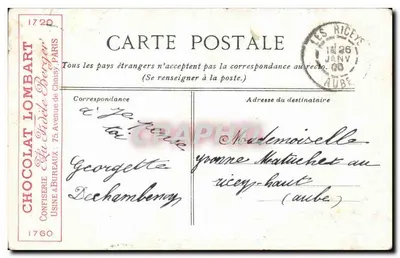 1720
CHOCOLAT LOMBART
CONFISERIE "Au Fidèle Berger"
USINE & BUREAUX, 75 Avenue de Choisy, PARIS
1760
CARTE POSTALE
Tous les pays étrangers n'acceptent pas la correspondance au recto
(Se renseigner à la poste.)
LES RICEYS
26
JANV
AUBE
Correspondance
à toi
Georgette
Dechambenoy
Adresse du destinataire
Mademoiselle
Yvonne Matuchet au
ricey-haut
(aube)